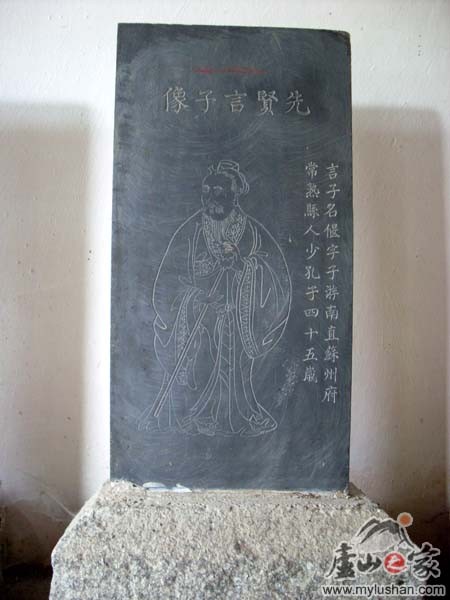 先賢言子像
言子名偃字子游南直蘇州府
常熟縣人少孔子四十五歲
庐山之家
www.mylushan.com